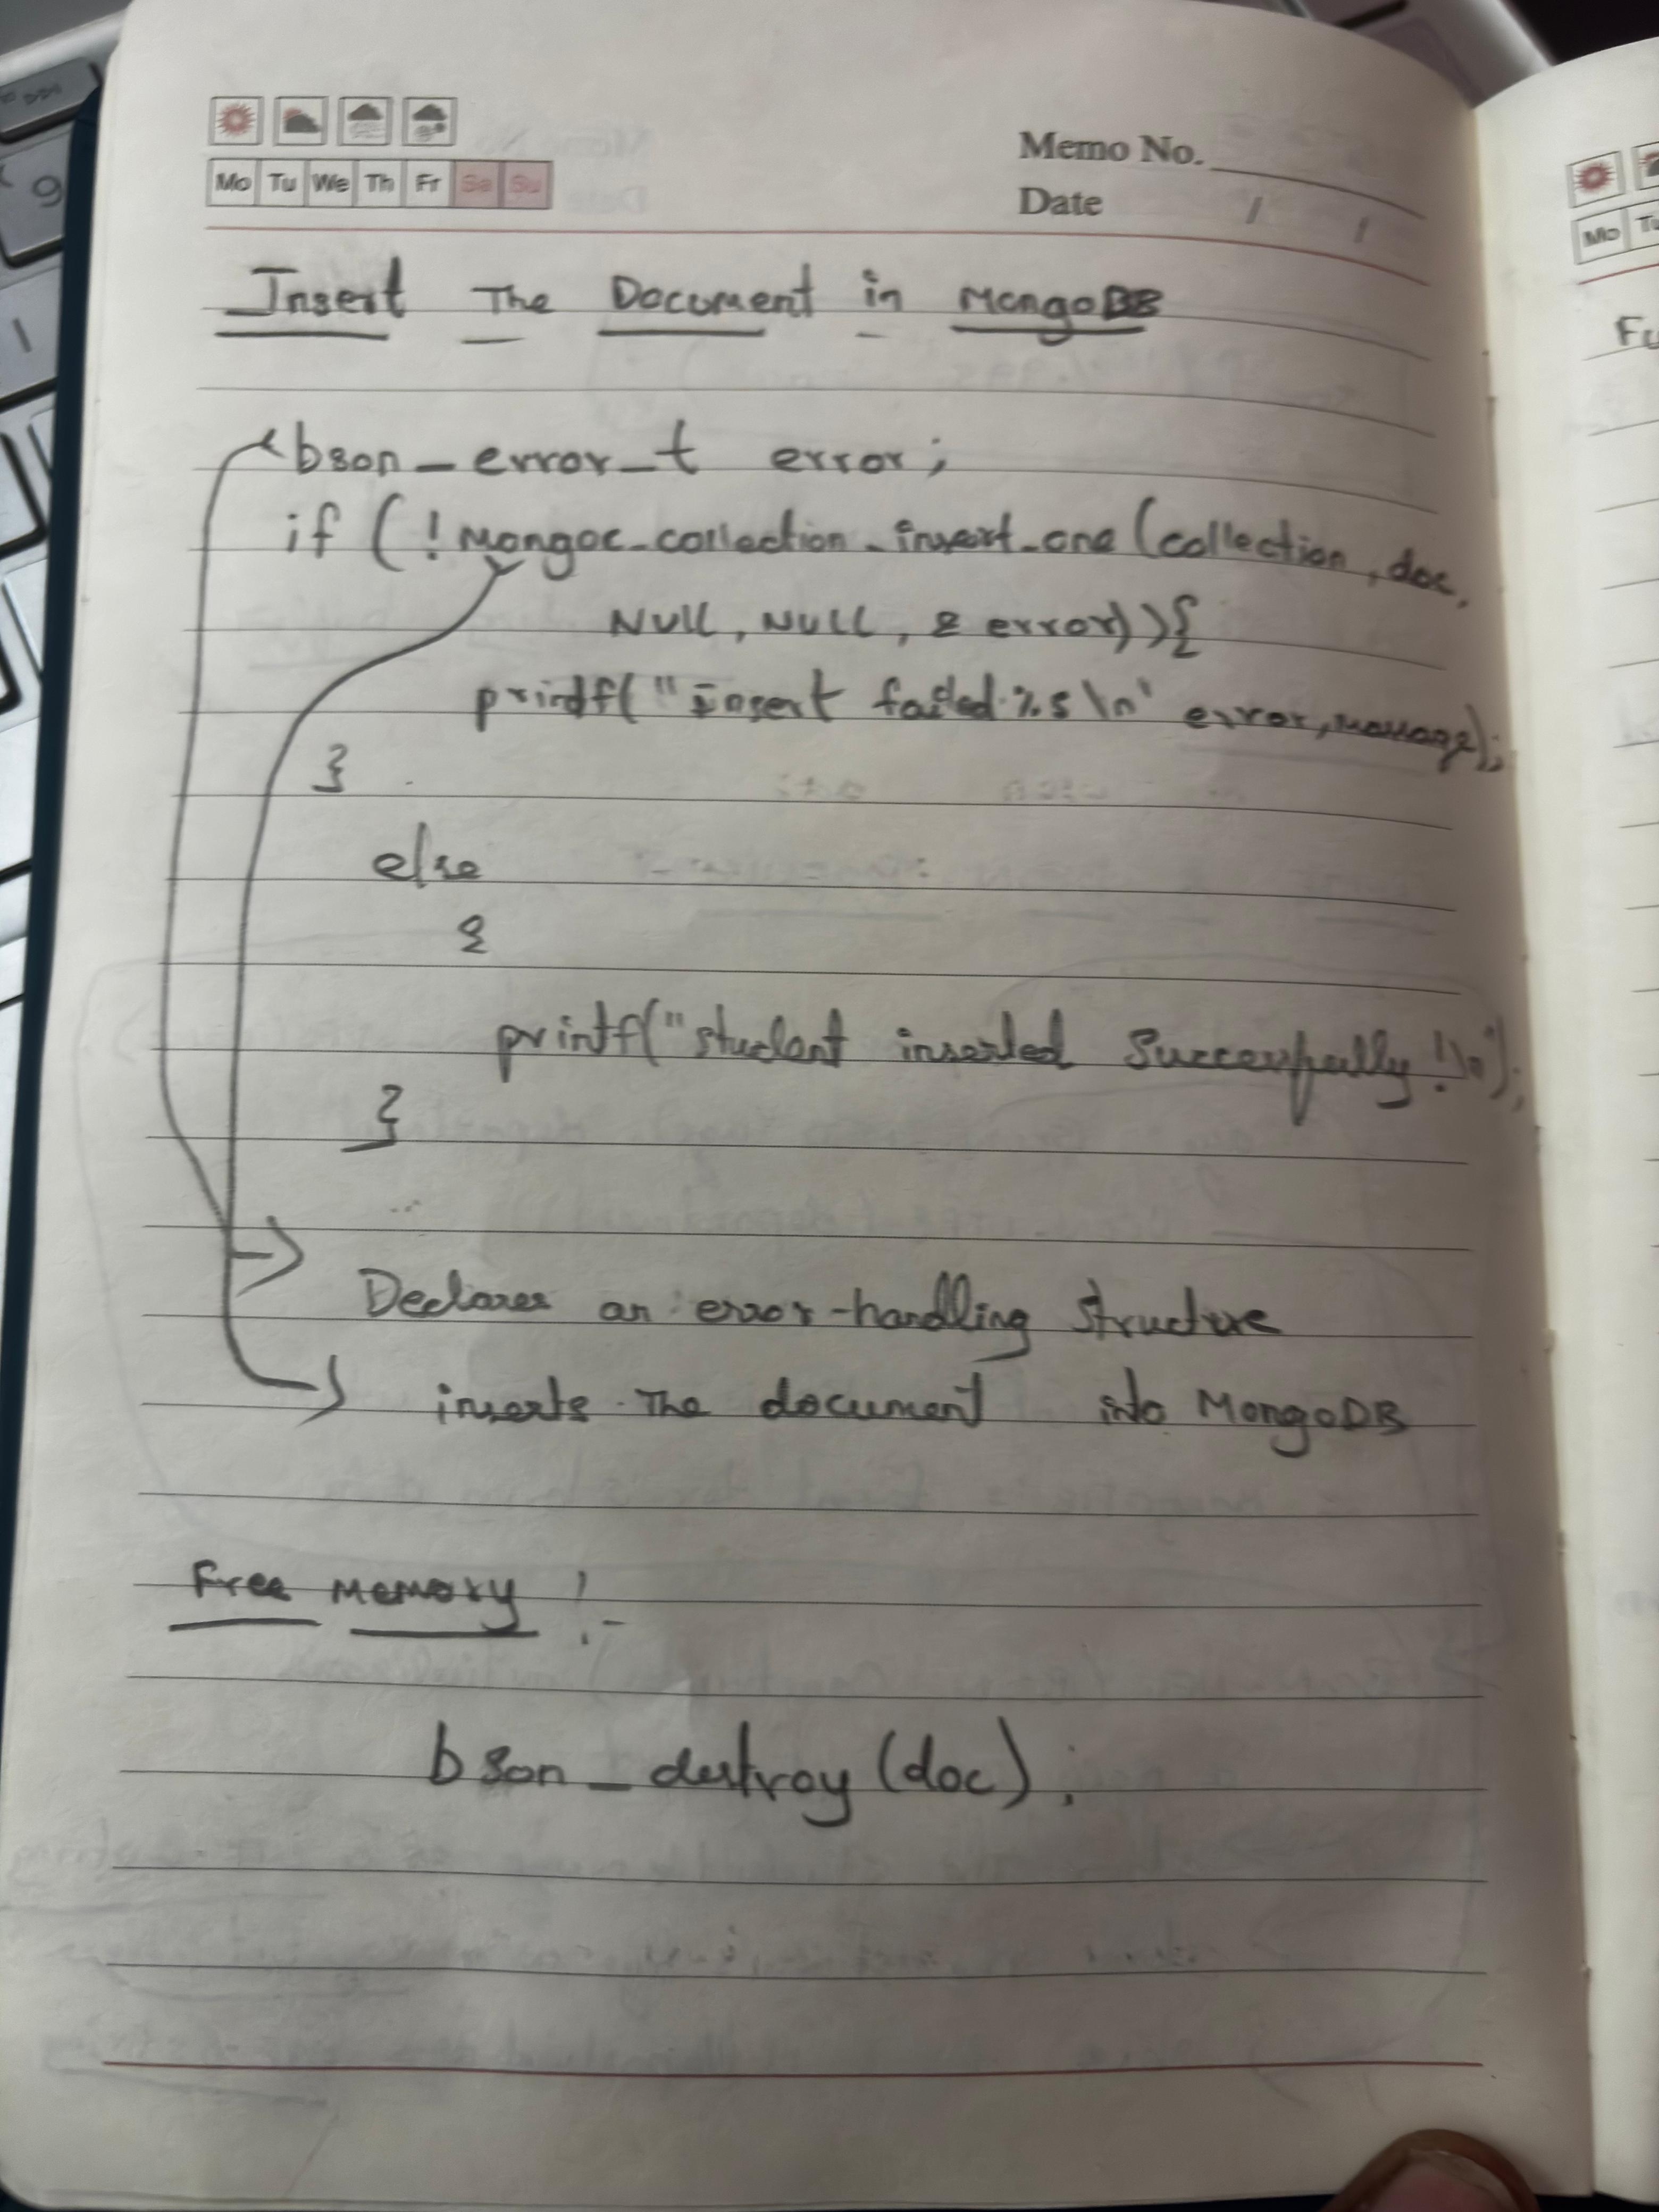 Mo Tu We Th Fr Sa Su
Memo No.
Date / /
Insert The Document in MongoDB
bson_error_t error;
if (!mongoc_collection_insert_one(collection, doc,
NULL, NULL, & error)){
printf("insert failed %s \n" error,message);
}
else
{
printf("student inserted Successfully!\n");
}
Declares an error-handling structure
inserts The document into MongoDB
Free memory :-
bson_destroy(doc);
Mo